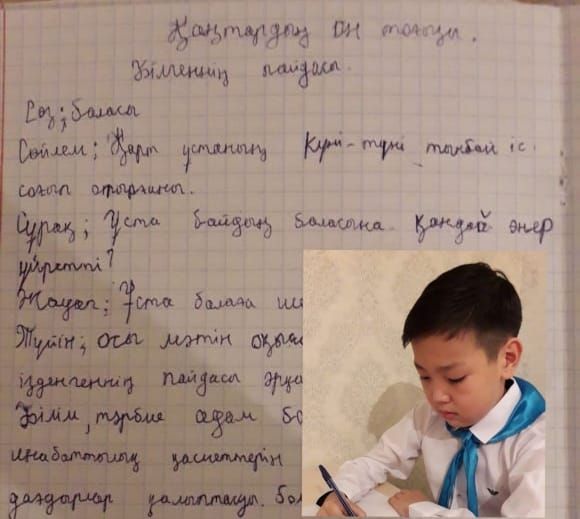 Қаңтардың он тоғызы.
Білгеннің пайдасы.
Сөз; баласы
Сөйлем; Қарт ұстаның күні-түні тынбай іс
соғып отырғаны.
Сұрақ; Ұста байдың баласына қандай өнер
үйретті?
Жауап; Ұста балаға
Түйін; осы мәтін
ізденгеннің пайдасы
Білім, тәрбие адам
инабаттылық қасиеттерін
қалыптасуы.